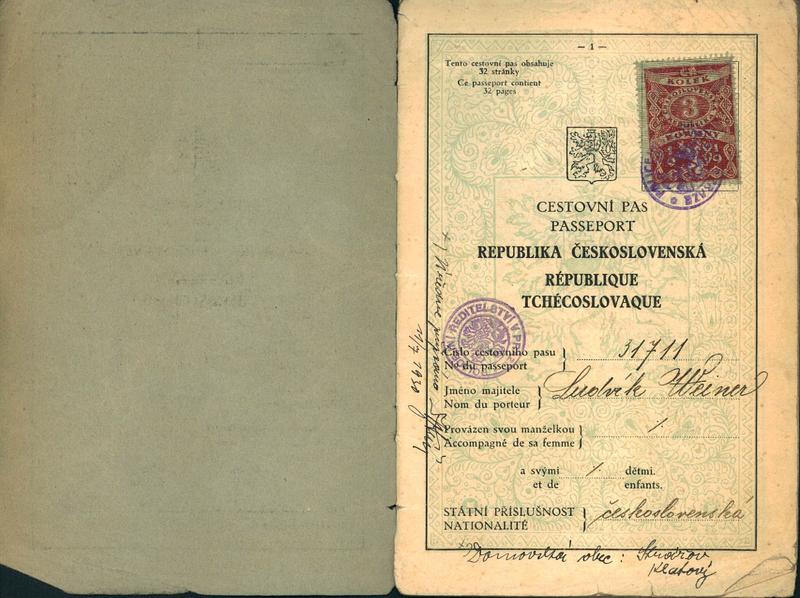 — 1 —
Tento cestovní pas obsahuje
32 stránky
Ce passeport contient
32 pages
KOLEK
3
CESTOVNÍ PAS
PASSEPORT
REPUBLIKA ČESKOSLOVENSKÁ
RÉPUBLIQUE
TCHÉCOSLOVAQUE
ŘEDITELSTVÍ V PRAZE
Číslo cestovního pasu
No du passeport
31711
Jméno majitele
Nom du porteur
Ludvík Weiner
Provázen svou manželkou
Accompagné de sa femme
a svými
et de
dětmi.
enfants.
STÁTNÍ PŘÍSLUŠNOST
NATIONALITÉ
československá
Domovská obec:
Klatovy